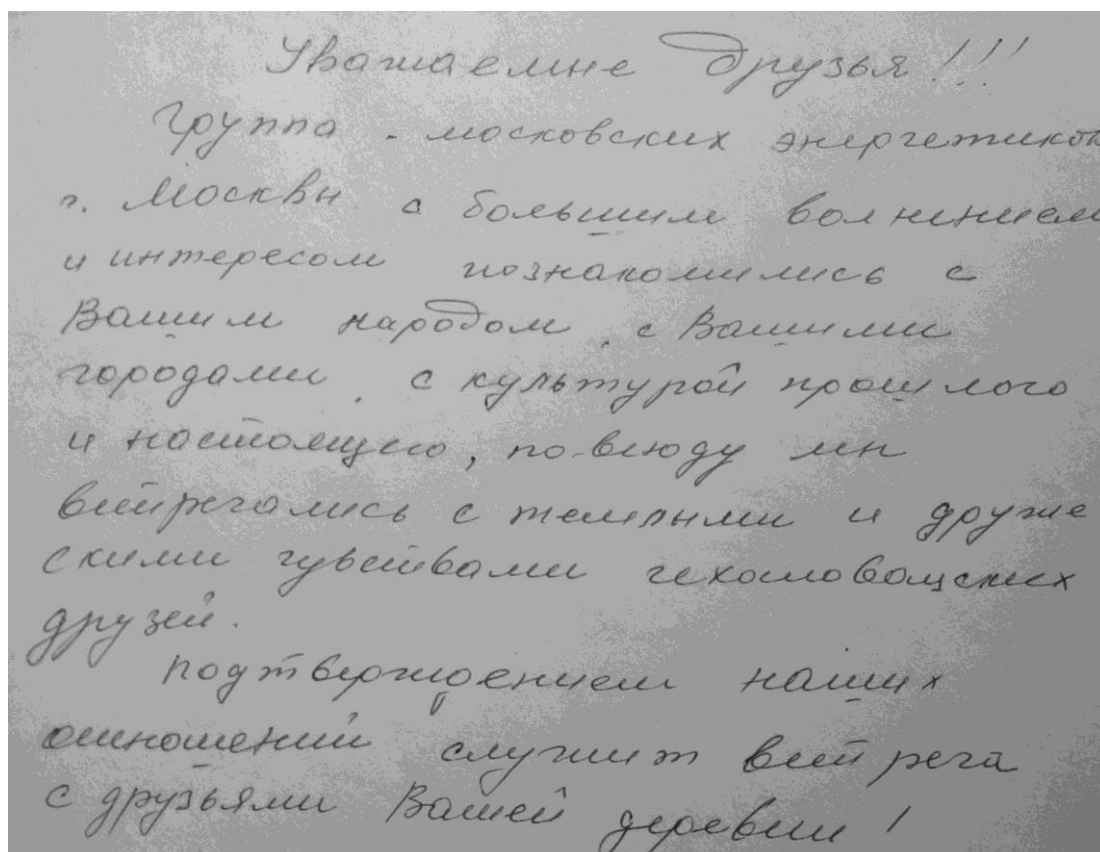 Уважаемые друзья!!!
Группа - московских энергетиков
г. Москвы с большим волнением
и интересом познакомились с
Вашим народом, с Вашими
городами, с культурой прошлого
и настоящего, по-всюду мы
встречались с теплыми и друже
скими чувствами чехословацких
друзей.
Подтверждением наших
отношений служит встреча
с друзьями Вашей деревни!